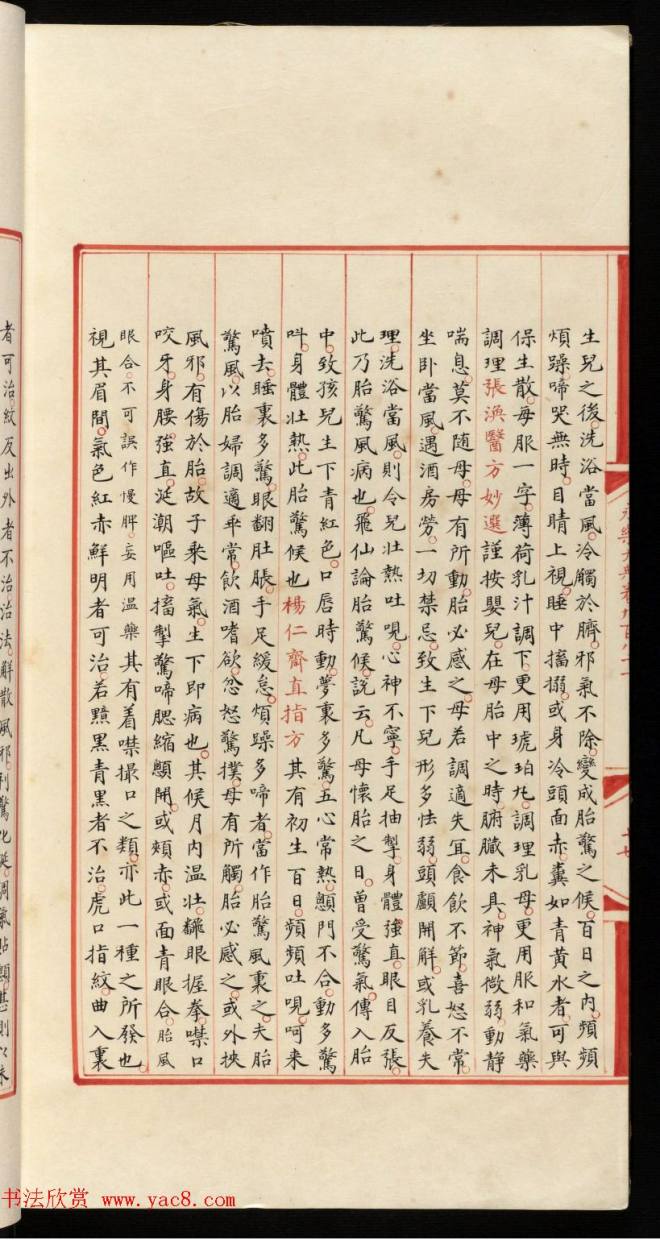 生兒之後洗浴當風冷觸於臍邪氣不除變成胎驚之候百日之內頻頻
煩躁啼哭無時目睛上視睡中搐搦或身冷頭面赤糞如青黃水者可與
保生散每服一字薄荷乳汁調下更用琥珀丸調理乳母更用服和氣藥
調理張渙醫方妙選謹按嬰兒在母胎中之時腑臟未具神氣微弱動靜
喘息莫不随母母有所動胎必感之母若調適失宜食飲不節喜怒不常
坐卧當風遇酒房勞一切禁忌致生下兒形多怯弱頭顱開解或乳養失
理洗浴當風則令兒壯熱吐哯心神不寧手足抽掣身體強直眼目反張
此乃胎驚風病也飛仙論胎驚候說云凡母懷胎之日曾受驚氣傳入胎
中致孩兒生下青紅色口唇時動夢裏多驚五心常熱顖門不合動多驚
呌身體壮熱此胎驚候也楊仁齋直指方其有初生百日頻頻吐哯呵来
噴去睡裏多驚眼翻肚脹手足緩怠煩躁多啼者當作胎驚風裏之夫胎
驚風以胎婦調適乖常飲酒嗜欲忿怒驚撲母有所觸胎必感之或外挾
風邪有傷於胎故子乘母氣生下即病也其候月內温壮翻眼握拳噤口
咬牙身腰強直涎潮嘔吐搐掣驚啼腮縮顖開或頰赤或面青眼合胎風
眼合不可誤作慢脾妄用温藥其有着噤撮口之類亦此一種之所發也
視其眉間氣色紅赤鮮明者可治若黯黑青黑者不治虎口指紋曲入裏
者可治紋反出外者不治治法解散風邪利驚化涎調氣貼顖甚則以
永樂大典卷九百八十一
书法欣赏 www.yac8.com